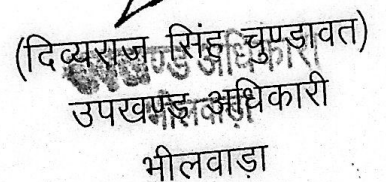 (दिव्यराज सिंह चुण्डावत)
उपखण्ड अधिकारी
भीलवाड़ा